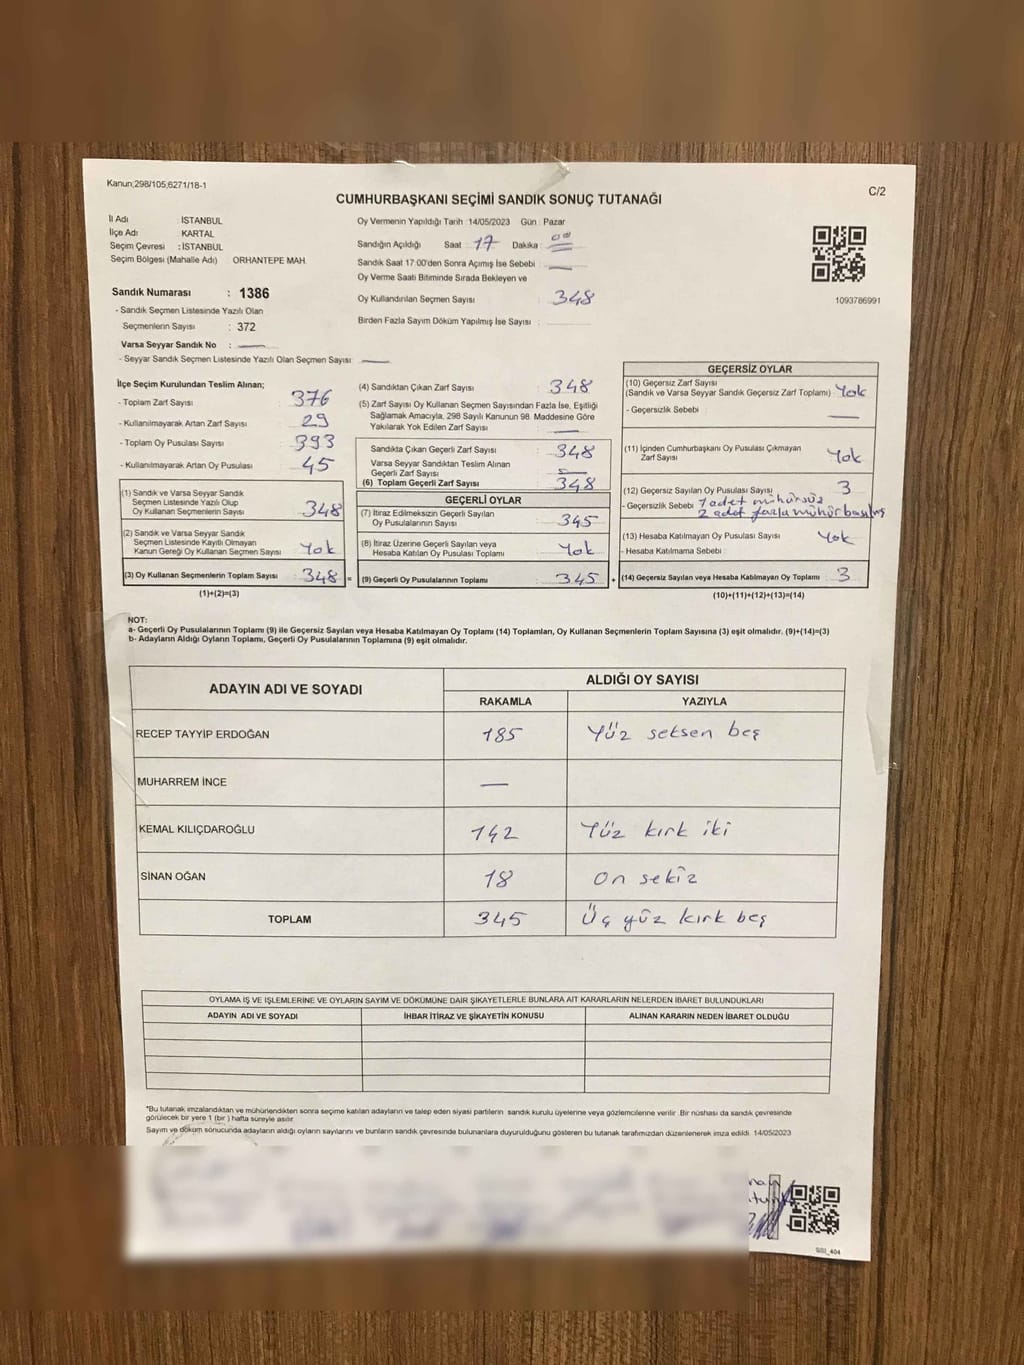 Kanun;298/105,6271/18-1
C/2
CUMHURBAŞKANI SEÇİMİ SANDIK SONUÇ TUTANAĞI
İl Adı : İSTANBUL
İlçe Adı : KARTAL
Seçim Çevresi : İSTANBUL
Seçim Bölgesi (Mahalle Adı) ORHANTEPE MAH.
Sandık Numarası : 1386
- Sandık Seçmen Listesinde Yazılı Olan
Seçmenlerin Sayısı : 372
Varsa Seyyar Sandık No : —
- Seyyar Sandık Seçmen Listesinde Yazılı Olan Seçmen Sayısı: —
Oy Vermenin Yapıldığı Tarih :14/05/2023 Gün : Pazar
Sandığın Açıldığı Saat : 17 Dakika : 00
Sandık Saat 17:00'den Sonra Açımış İse Sebebi : —
Oy Verme Saati Bitiminde Sırada Bekleyen ve
Oy Kullandırılan Seçmen Sayısı : 348
Birden Fazla Sayım Döküm Yapılmış İse Sayısı :
1093786991
İlçe Seçim Kurulundan Teslim Alınan;
- Toplam Zarf Sayısı : 376
- Kullanılmayarak Artan Zarf Sayısı : 29
- Toplam Oy Pusulası Sayısı : 393
- Kullanılmayarak Artan Oy Pusulası : 45
(1) Sandık ve Varsa Seyyar Sandık
Seçmen Listesinde Yazılı Olup
Oy Kullanan Seçmenlerin Sayısı : 348
(2) Sandık ve Varsa Seyyar Sandık
Seçmen Listesinde Kayıtlı Olmayan
Kanun Gereği Oy Kullanan Seçmen Sayısı : Yok
(3) Oy Kullanan Seçmenlerin Toplam Sayısı : 348 =
(1)+(2)=(3)
(4) Sandıktan Çıkan Zarf Sayısı : 348
(5) Zarf Sayısı Oy Kullanan Seçmen Sayısından Fazla İse, Eşitliği
Sağlamak Amacıyla, 298 Sayılı Kanunun 98. Maddesine Göre
Yakılarak Yok Edilen Zarf Sayısı : —
Sandıkta Çıkan Geçerli Zarf Sayısı : 348
Varsa Seyyar Sandıktan Teslim Alınan
Geçerli Zarf Sayısı : —
(6) Toplam Geçerli Zarf Sayısı : 348
GEÇERLİ OYLAR
(7) İtiraz Edilmeksizin Geçerli Sayılan
Oy Pusulalarının Sayısı : 345
(8) İtiraz Üzerine Geçerli Sayılan veya
Hesaba Katılan Oy Pusulası Toplamı : Yok
(9) Geçerli Oy Pusulalarının Toplamı : 345 +
GEÇERSİZ OYLAR
(10) Geçersiz Zarf Sayısı
(Sandık ve Varsa Seyyar Sandık Geçersiz Zarf Toplamı) : Yok
- Geçersizlik Sebebi : —
(11) İçinden Cumhurbaşkanı Oy Pusulası Çıkmayan
Zarf Sayısı : Yok
(12) Geçersiz Sayılan Oy Pusulası Sayısı : 3
- Geçersizlik Sebebi : 1 adet mühürsüz
2 adet fazla mühür basılmış
(13) Hesaba Katılmayan Oy Pusulası Sayısı : Yok
- Hesaba Katılmama Sebebi :
(14) Geçersiz Sayılan veya Hesaba Katılmayan Oy Toplamı : 3
(10)+(11)+(12)+(13)=(14)
NOT:
a- Geçerli Oy Pusulalarının Toplamı (9) ile Geçersiz Sayılan veya Hesaba Katılmayan Oy Toplamı (14) Toplamları, Oy Kullanan Seçmenlerin Toplam Sayısına (3) eşit olmalıdır. (9)+(14)=(3)
b- Adayların Aldığı Oyların Toplamı, Geçerli Oy Pusulalarının Toplamına (9) eşit olmalıdır.
ADAYIN ADI VE SOYADI
ALDIĞI OY SAYISI
RAKAMLA YAZIYLA
RECEP TAYYİP ERDOĞAN 185 Yüz seksen beş
MUHARREM İNCE —
KEMAL KILIÇDAROĞLU 142 Yüz kırk iki
SİNAN OĞAN 18 On sekiz
TOPLAM 345 Üç yüz kırk beş
OYLAMA İŞ VE İŞLEMLERİNE VE OYLARIN SAYIM VE DÖKÜMÜNE DAİR ŞİKAYETLERLE BUNLARA AİT KARARLARIN NELERDEN İBARET BULUNDUKLARI
ADAYIN ADI VE SOYADI İHBAR İTİRAZ VE ŞİKAYETİN KONUSU ALINAN KARARIN NEDEN İBARET OLDUĞU
*Bu tutanak imzalandıktan ve mühürlendikten sonra seçime katılan adayların ve talep eden siyasi partilerin sandık kurulu üyelerine veya gözlemcilerine verilir .Bir nüshası da sandık çevresinde
görülecek bir yere 1 (bir ) hafta süreyle asılır
Sayım ve döküm sonucunda adayların aldığı oyların sayılarını ve bunların sandık çevresinde bulunanlara duyurulduğunu gösteren bu tutanak tarafımızdan düzenlenerek imza edildi. 14/05/2023
SSI_404